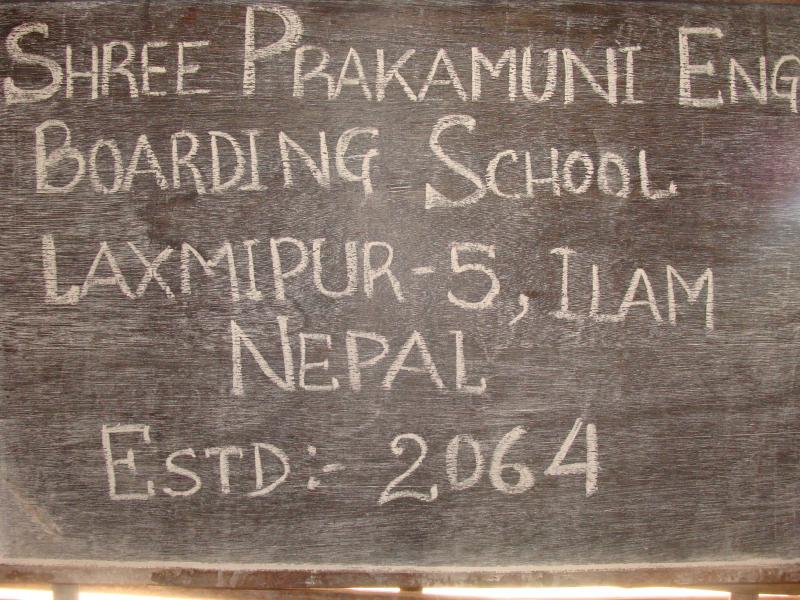 SHREE PRAKAMUNI ENG
BOARDING SCHOOL
LAXMIPUR-5, ILAM
NEPAL
ESTD:- 2064